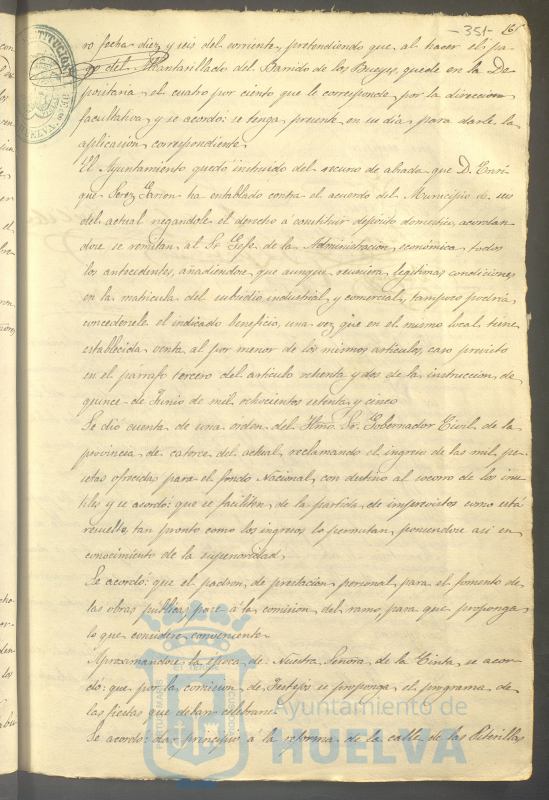 -351- 161
ro fecha diez y seis del corriente, pretendiendo que al hacer el pa-
go del Alcantarillado del Barrido de los Bueyes, quede en la De-
positaria, el cuatro por ciento que le corresponde, por la direccion
facultativa, y se acordó: se tenga presente en su dia, para darle la
aplicacion correspondiente.
El Ayuntamiento quedó instruido del recurso de alzada, que D. Enri-
que Perez Carion ha entablado contra el acuerdo del Municipio de seis
del actual negandole el derecho á constituir depósito domestico, acordan-
dose se remitan al Sr. Gefe de la Administracion económica todos
los antecedentes, añadiendose, que aunque reuniera legitimas condiciones
en la matricula del subsidio industrial y comercial, tampoco podria
concedersele el indicado beneficio, una vez que en el mismo local tiene
establecida venta al por menor de los mismos articulos, caso previsto
en el párrafo tercero del articulo ochenta y dos de la instruccion de
quince de Junio de mil ochocientos setenta y cinco
Se dió cuenta de una orden del Ilmo. Sr. Gobernador Civil de la
provincia de catorce del actual, reclamando el ingreso de las mil pe-
setas ofrecidas para el fondo Nacional con destino al socorro de los inu-
tiles y se acordó: que se faciliten de la partida de imprevistos como está
resuelto, tan pronto como los ingresos lo permitan, poniendose asi en
conocimiento de la superioridad.
Se acordó: que el padron de prestacion personal para el fomento de
las obras públicas pase á la comision del ramo, para que proponga
lo que considere conveniente
Aproximandose la época de Nuestra Señora de la Cinta, se acor-
dó: que por la comision de Festejos se proponga el programa de
las fiestas que deban celebrarse.
Se acordó: dar principio á la reforma de la calle de las Piterillas
Ayuntamiento de
HUELVA